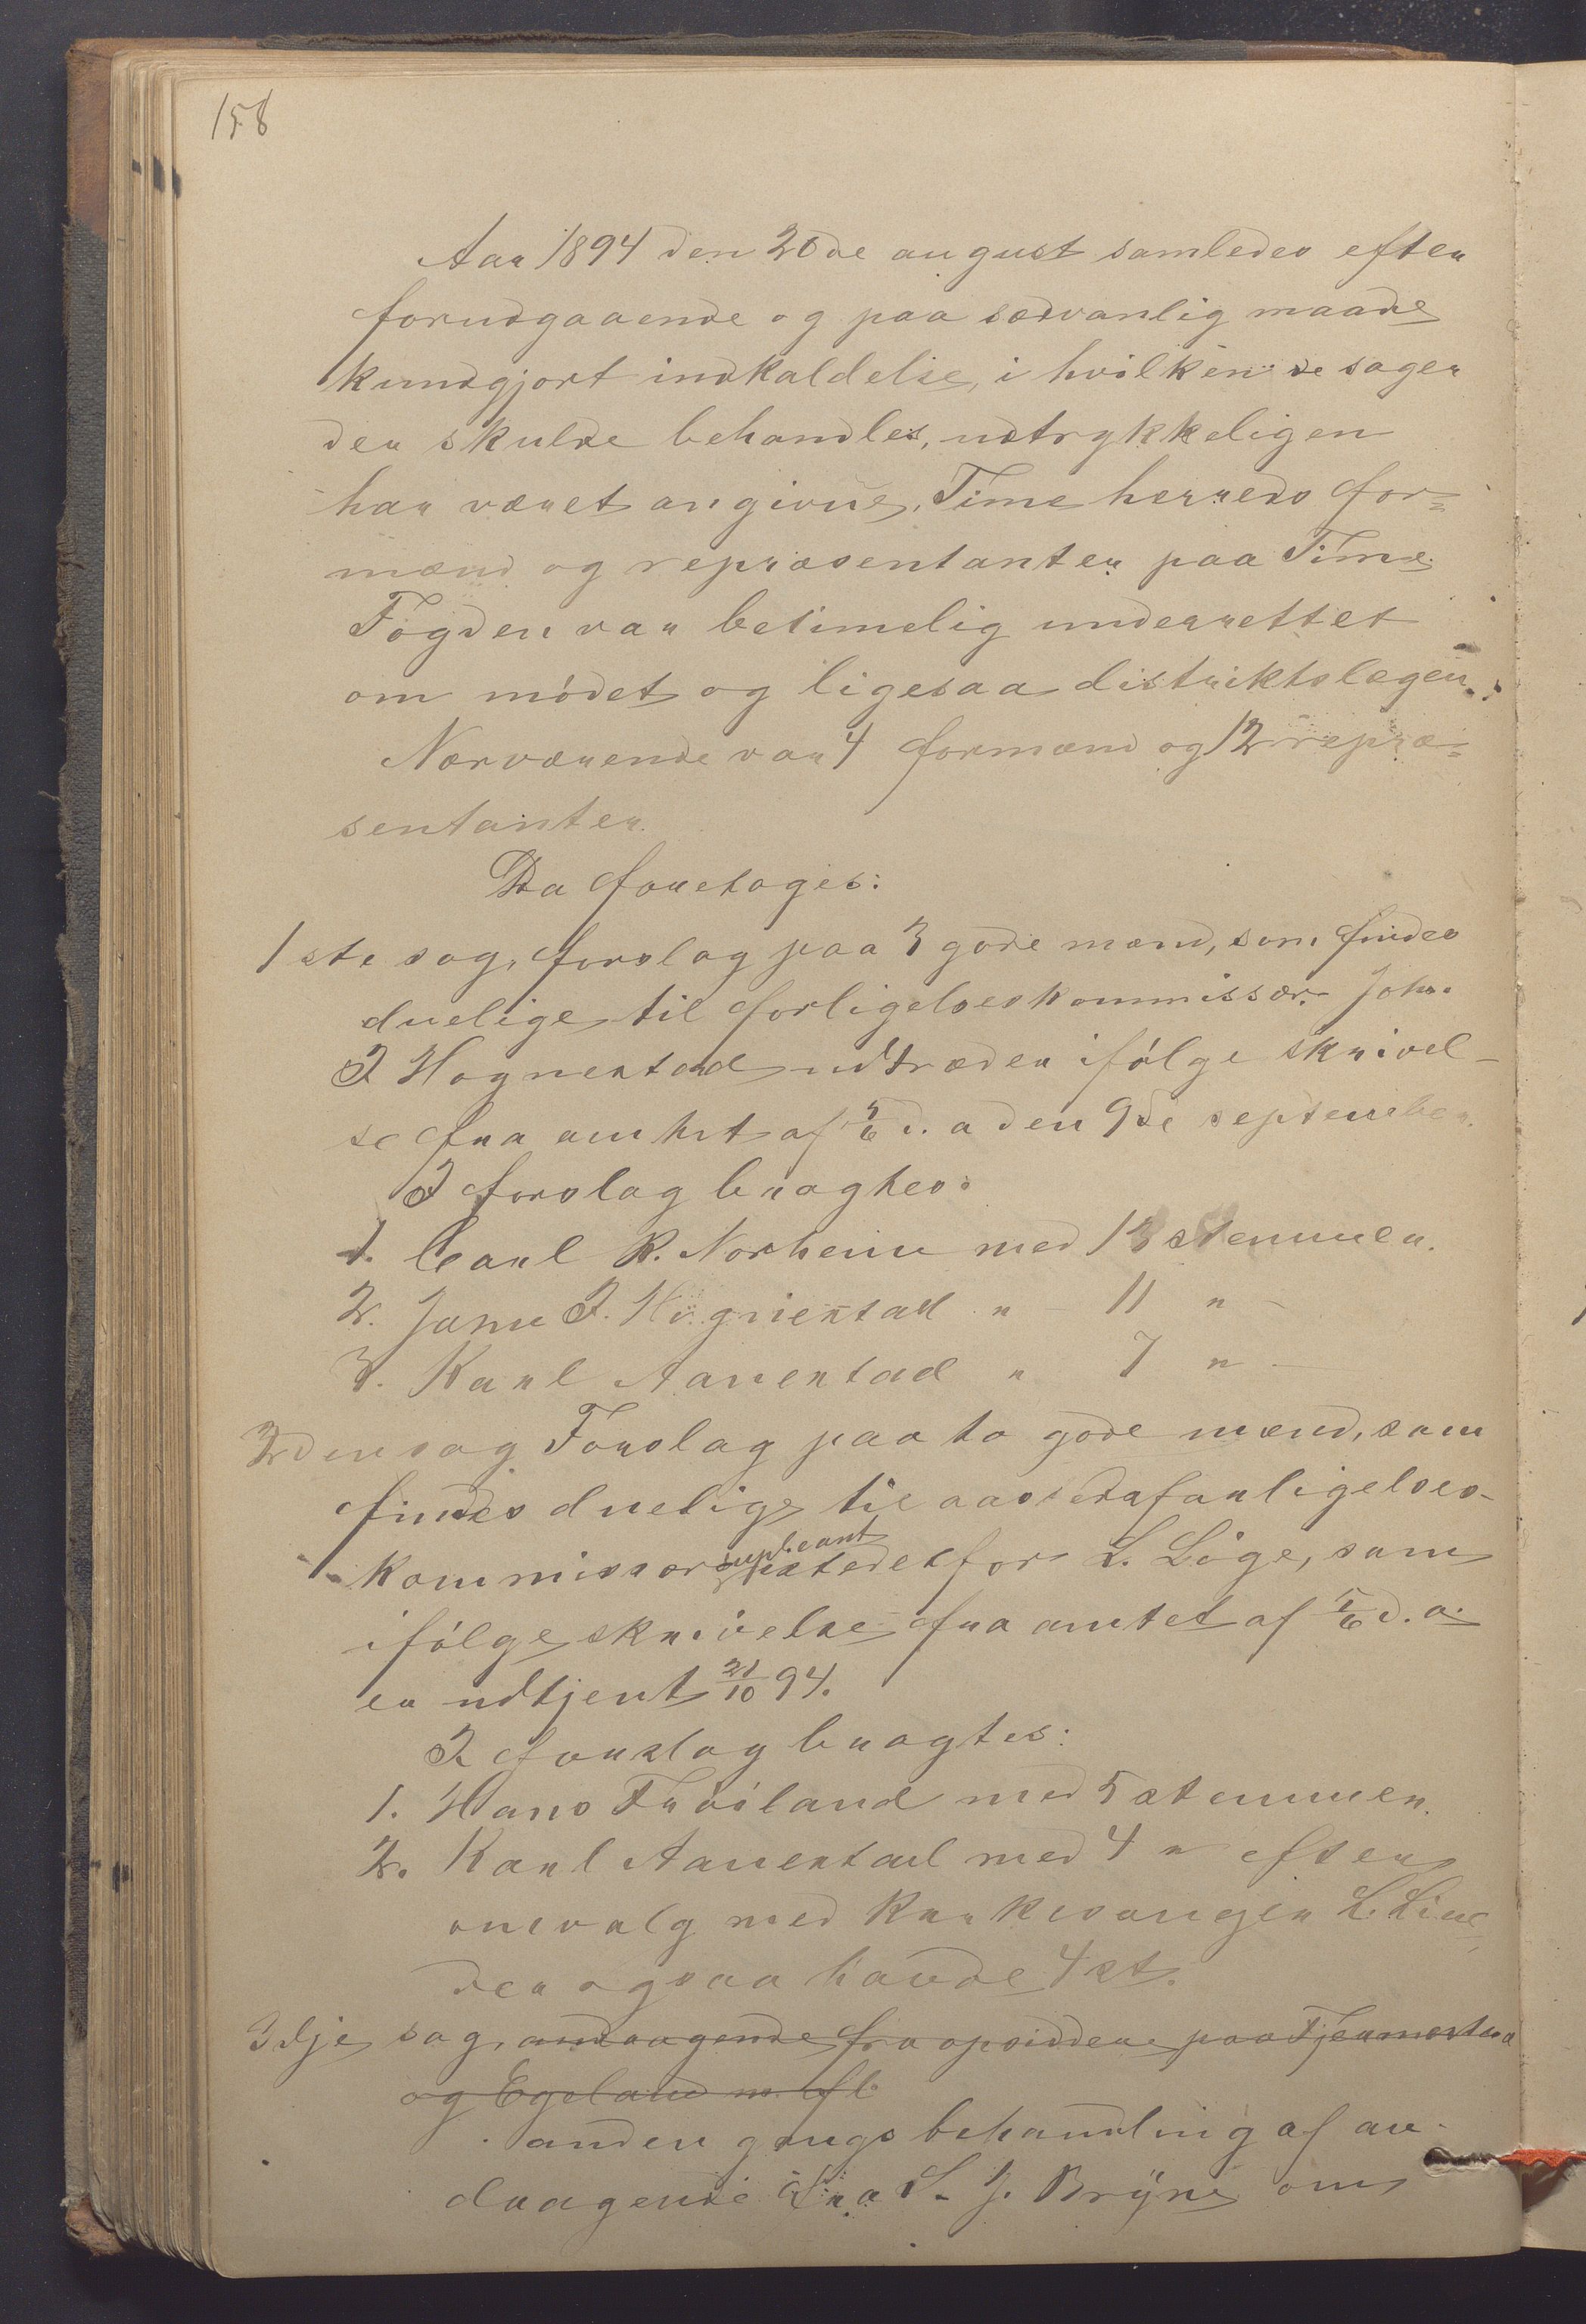 158
Aar 1894 den 20de august samledes efter
forudgaaende og paa sædvanlig maade
kundgjort indkaldelse, i hvilken de sager
der skulde behandles, udtrykkeligen
har været angivne, Time herreds for-
mænd og repræsentanter paa Time.
Fogden var betimelig underrettet
om mödet og ligesaa distriktslægen.
Nærværende var 4 formænd og 12 repræ-
sentanter.
Da foretoges:
1ste sag, forslag paa 3 gode mænd, som findes
duelige til forligelseskommissær. John
I Hognestad udtræder ifölge skrivel-
se fra amtet af 5/6 d. a den 9de september.
I forslag bragtes:
1. Carl K. Norheim med 13 stemmer.
2. John I. Hognestad " 11 "
3. Karl Aarrestad " 7 "
2den sag Forslag paa to gode mænd, som
findes duelige til aastedsforligelses-
kommissær supleant istedetfor L. Löge, som
ifölge skrivelse fra amtet af 5/6 d. a.
er udtjent 21/10 94.
I forslag bragtes:
1. Hans Fröiland med 5 stemmer.
2. Karl Aarrestad med 4 " efter
omvalg med Kirkesanger L. Line
der ogsaa havde 4 st.
3dje sag, andragende fra opsiddere paa Fjermestad
og Egeland m. fl.
anden gangs behandling af an-
dragende fra S. J. Bryne om